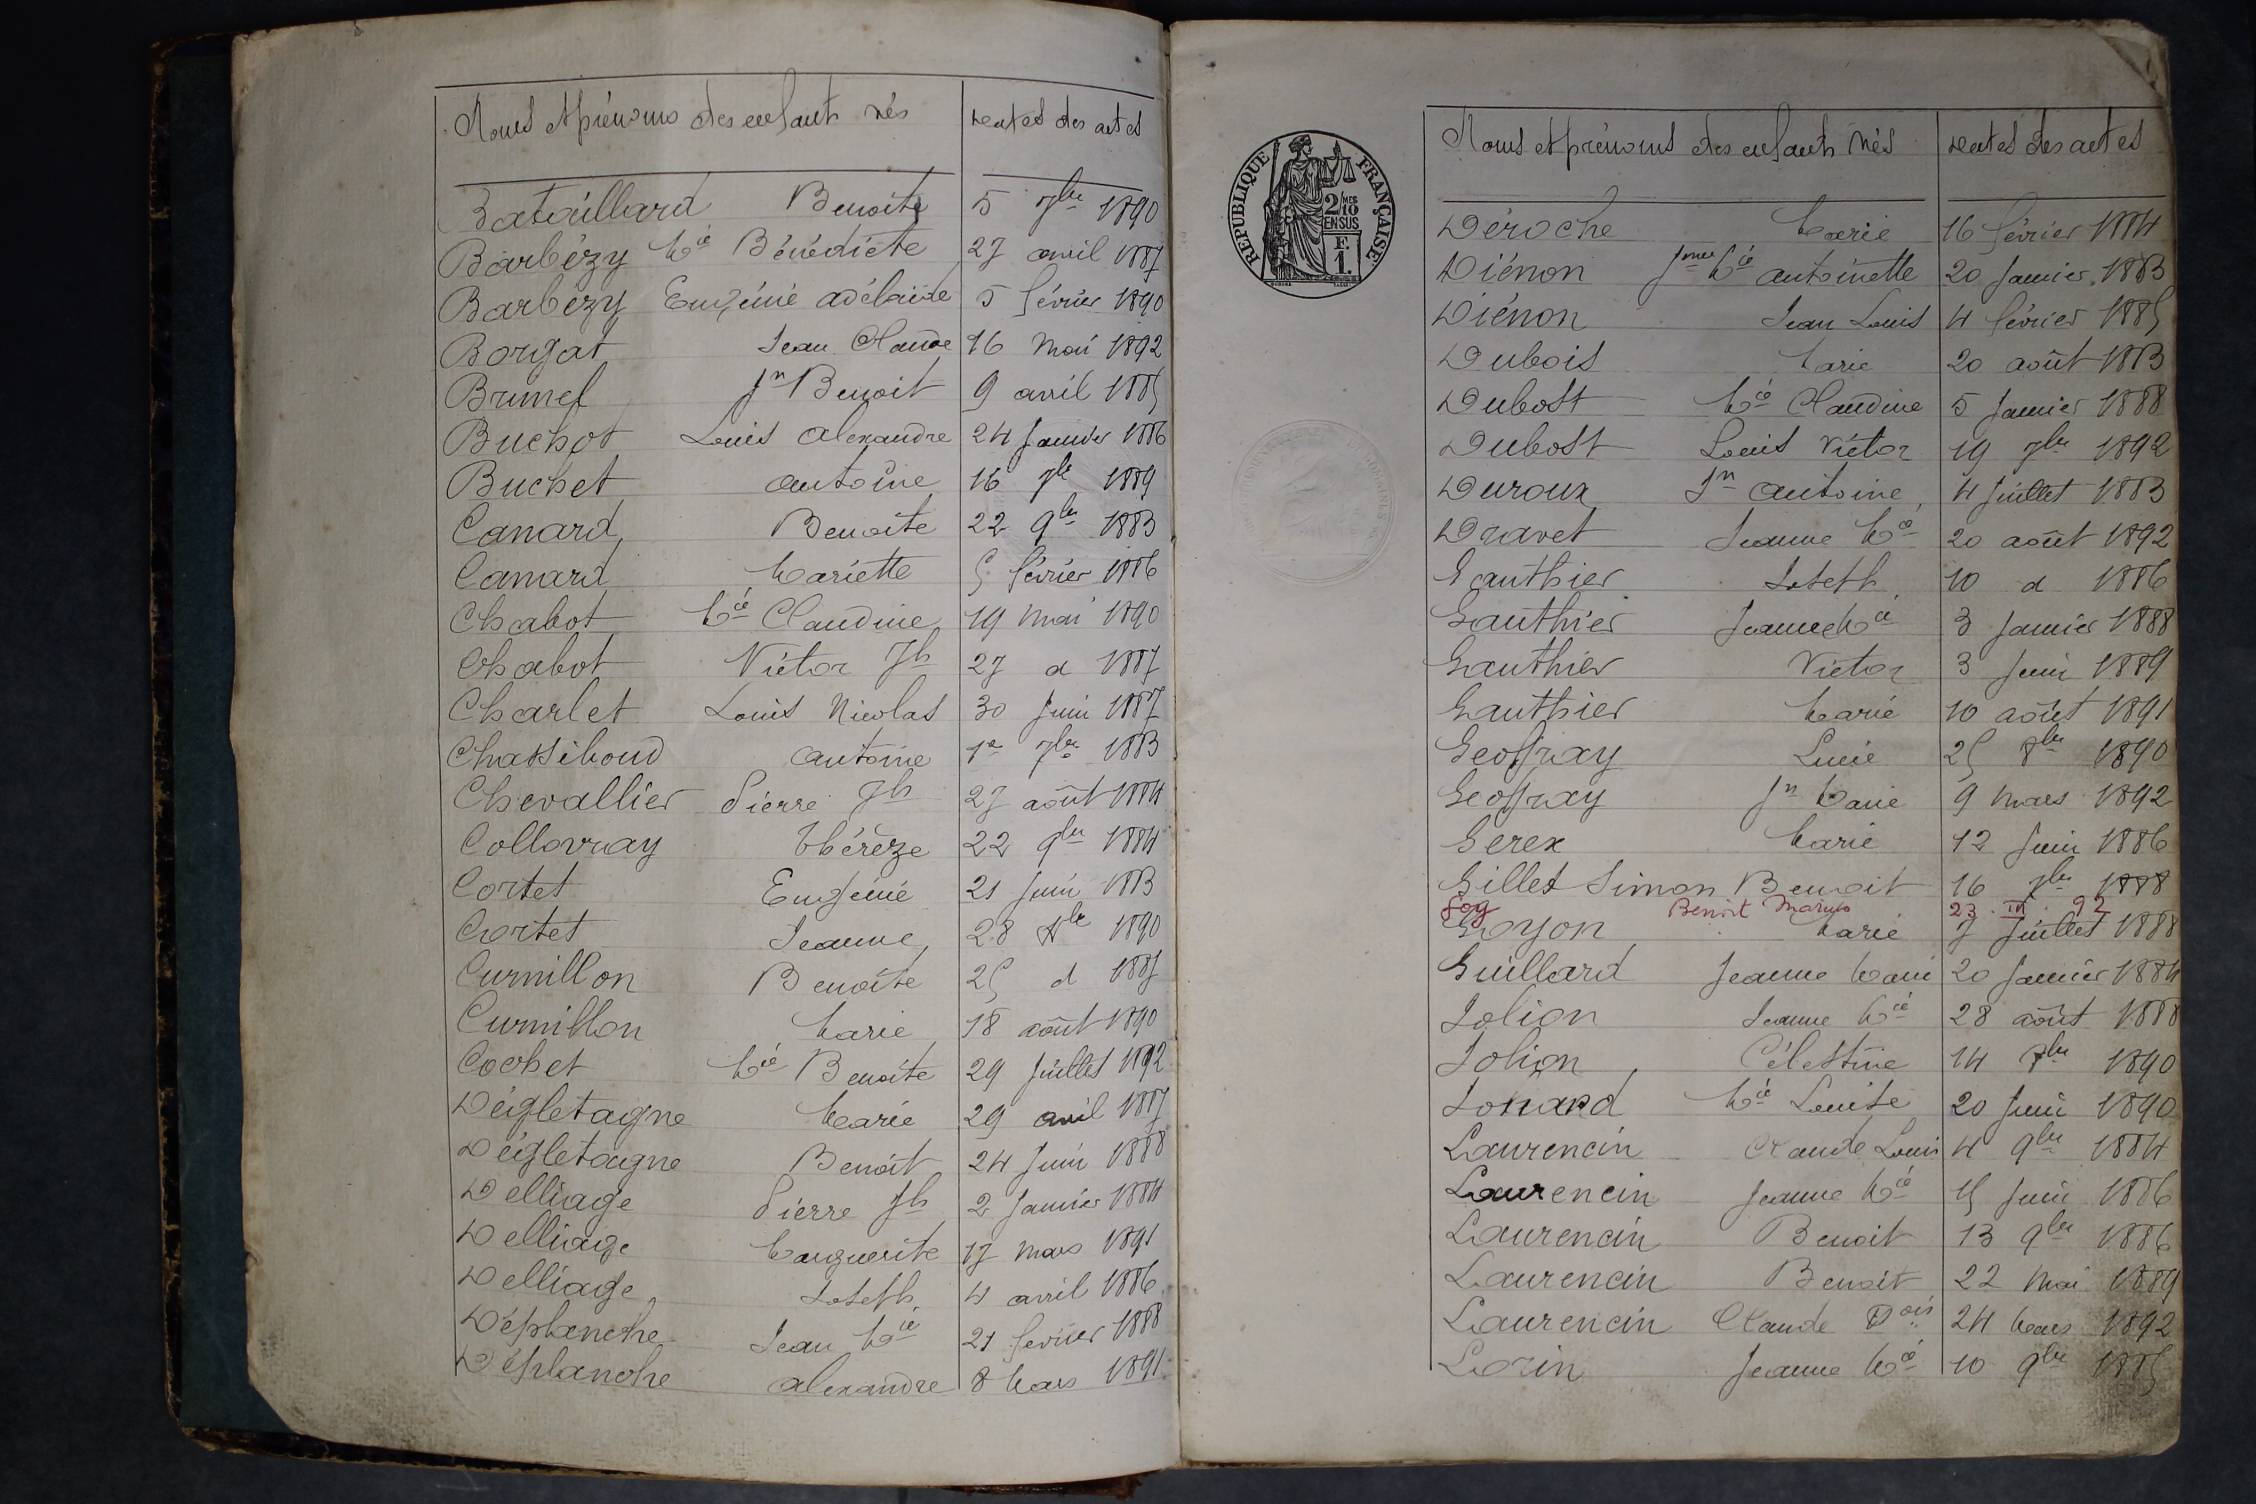 Noms et prénoms des enfants nés Dates des actes
Bataillard Benoîte 5 7bre 1890
Barbézy Mie Bénédicte 27 avril 1887
Barbézy Eugénie adélaïde 5 février 1890
Borgat Jean Claude 16 Mai 1892
Brunel Jn Benoit 9 avril 1885
Buchot Louis alexandre 24 Janvier 1886
Buchet antoine 16 7bre 1889
Canard Benoîte 22 9bre 1883
Canard Mariette 5 février 1886
Chabot Mie Claudine 19 Mai 1890
Chabot Victor Jh 27 d 1887
Charlet Louis Nicolas 30 Juin 1887
Chassiboud antoine 1er 7bre 1883
Chevallier Pierre Jh 27 août 1884
Collovray Thérèze 22 9bre 1884
Cortet Eugénie 21 Juin 1883
Cortet Jeanne 28 Xbre 1890
Curnillon Benoîte 25 d 1885
Curnillon Marie 18 août 1890
Cochet Mie Benoîte 29 Juillet 1892
Déigletagne Marie 29 avril 1887
Déigletagne Benoît 24 Juin 1888
Delliage Pierre Jh 2 Janvier 1884
Delliage Marguerite 17 Mars 1891
Delliage Joseph 4 avril 1886
Déplanche Jean Mie 21 février 1888
Déplanche alexandre 8 Mars 1891
RÉPUBLIQUE FRANÇAISE
2/10 MES
EN SUS
F.
1.
Noms et prénoms des enfants nés Dates des actes
Déroche Marie 16 février 1884
Diénon Jnne Mie antoinette 20 Janvier 1883
Diénon Jean Louis 4 février 1885
Dubois Marie 20 août 1883
Dubost Mie Claudine 5 Janvier 1888
Dubost Louis Victor 19 7bre 1892
Duroux Jn antoine 4 Juillet 1883
Dravet Jeanne Mie 20 août 1892
Gauthier Joseph 10 d 1886
Gauthier Jeanne Mie 3 Janvier 1888
Gauthier Victor 3 Juin 1889
Gauthier Marie 10 août 1891
Geoffray Lucie 25 8bre 1890
Geoffray Jn Marie 9 Mars 1892
Gerex Marie 12 Juin 1886
Gillet Simon Benoit 16 7bre 1888
Goy Benoit Marius 23 . III . 92
Goyon Marie 7 Juillet 1888
Guillard Jeanne Marie 20 Janvier 1884
Jolion Jeanne Mie 28 août 1888
Jolion Célestine 14 7bre 1890
Jonard Mie Louise 20 Juin 1890
Laurencin Claude Louis 4 9bre 1884
Laurencin Jeanne Mie 15 Juin 1886
Laurencin Benoit 13 9bre 1886
Laurencin Benoit 22 Mai 1889
Laurencin Claude Fois 24 Mars 1892
Lorin Jeanne Mie 10 9bre 1885